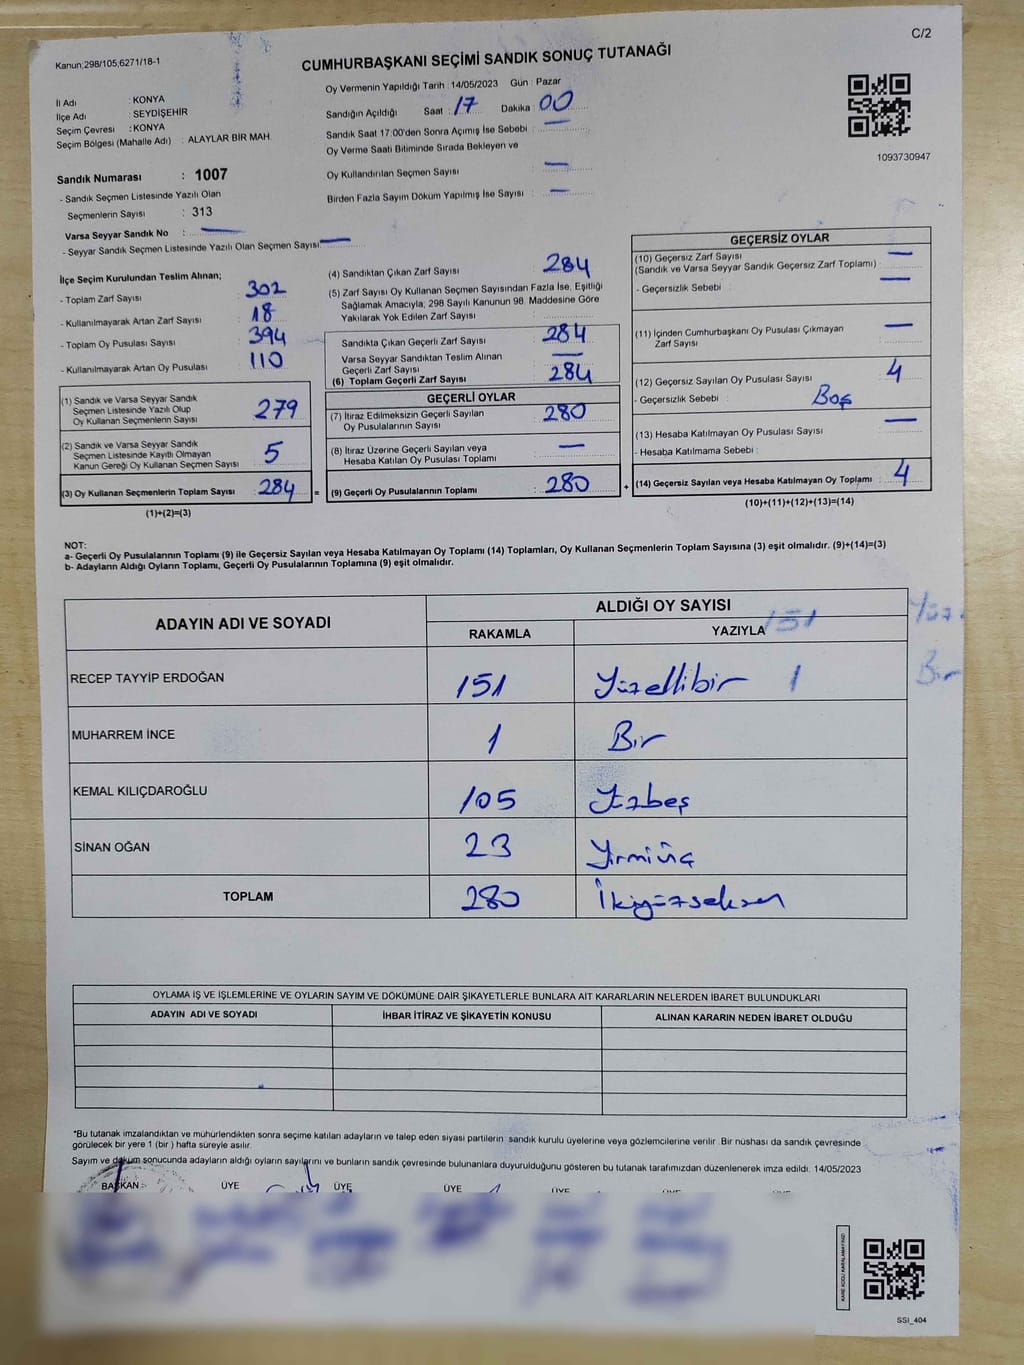 C/2
Kanun;298/105,6271/18-1
CUMHURBAŞKANI SEÇİMİ SANDIK SONUÇ TUTANAĞI
İl Adı : KONYA
İlçe Adı : SEYDİŞEHİR
Seçim Çevresi : KONYA
Seçim Bölgesi (Mahalle Adı) : ALAYLAR BİR MAH.
Oy Vermenin Yapıldığı Tarih : 14/05/2023 Gün : Pazar
Sandığın Açıldığı Saat : 17 Dakika : 00
Sandık Saat 17:00'den Sonra Açımış İse Sebebi : —
Oy Verme Saati Bitiminde Sırada Bekleyen ve
Oy Kullandırılan Seçmen Sayısı : —
Birden Fazla Sayım Döküm Yapılmış İse Sayısı : —
1093730947
Sandık Numarası : 1007
- Sandık Seçmen Listesinde Yazılı Olan
Seçmenlerin Sayısı : 313
Varsa Seyyar Sandık No : —
- Seyyar Sandık Seçmen Listesinde Yazılı Olan Seçmen Sayısı: —
İlçe Seçim Kurulundan Teslim Alınan;
- Toplam Zarf Sayısı : 302
- Kullanılmayarak Artan Zarf Sayısı : 18
- Toplam Oy Pusulası Sayısı : 394
- Kullanılmayarak Artan Oy Pusulası : 110
(1) Sandık ve Varsa Seyyar Sandık
Seçmen Listesinde Yazılı Olup
Oy Kullanan Seçmenlerin Sayısı : 279
(2) Sandık ve Varsa Seyyar Sandık
Seçmen Listesinde Kayıtlı Olmayan
Kanun Gereği Oy Kullanan Seçmen Sayısı : 5
(3) Oy Kullanan Seçmenlerin Toplam Sayısı : 284 =
(1)+(2)=(3)
(4) Sandıktan Çıkan Zarf Sayısı : 284
(5) Zarf Sayısı Oy Kullanan Seçmen Sayısından Fazla İse, Eşitliği
Sağlamak Amacıyla; 298 Sayılı Kanunun 98. Maddesine Göre
Yakılarak Yok Edilen Zarf Sayısı :
Sandıkta Çıkan Geçerli Zarf Sayısı : 284
Varsa Seyyar Sandıktan Teslim Alınan
Geçerli Zarf Sayısı : —
(6) Toplam Geçerli Zarf Sayısı : 284
GEÇERLİ OYLAR
(7) İtiraz Edilmeksizin Geçerli Sayılan
Oy Pusulalarının Sayısı : 280
(8) İtiraz Üzerine Geçerli Sayılan veya
Hesaba Katılan Oy Pusulası Toplamı : —
(9) Geçerli Oy Pusulalarının Toplamı : 280 +
GEÇERSİZ OYLAR
(10) Geçersiz Zarf Sayısı
(Sandık ve Varsa Seyyar Sandık Geçersiz Zarf Toplamı) : —
- Geçersizlik Sebebi : —
(11) İçinden Cumhurbaşkanı Oy Pusulası Çıkmayan
Zarf Sayısı : —
(12) Geçersiz Sayılan Oy Pusulası Sayısı : 4
- Geçersizlik Sebebi : Boş
(13) Hesaba Katılmayan Oy Pusulası Sayısı : —
- Hesaba Katılmama Sebebi :
(14) Geçersiz Sayılan veya Hesaba Katılmayan Oy Toplamı : 4
(10)+(11)+(12)+(13)=(14)
NOT:
a- Geçerli Oy Pusulalarının Toplamı (9) ile Geçersiz Sayılan veya Hesaba Katılmayan Oy Toplamı (14) Toplamları, Oy Kullanan Seçmenlerin Toplam Sayısına (3) eşit olmalıdır. (9)+(14)=(3)
b- Adayların Aldığı Oyların Toplamı, Geçerli Oy Pusulalarının Toplamına (9) eşit olmalıdır.
ADAYIN ADI VE SOYADI
ALDIĞI OY SAYISI
RAKAMLA YAZIYLA 151 Yüz
RECEP TAYYİP ERDOĞAN 151 Yüzellibir 1 Bir
MUHARREM İNCE 1 Bir
KEMAL KILIÇDAROĞLU 105 Yüzbeş
SİNAN OĞAN 23 Yirmiüç
TOPLAM 280 İkiyüzseksen
OYLAMA İŞ VE İŞLEMLERİNE VE OYLARIN SAYIM VE DÖKÜMÜNE DAİR ŞİKAYETLERLE BUNLARA AİT KARARLARIN NELERDEN İBARET BULUNDUKLARI
ADAYIN ADI VE SOYADI İHBAR İTİRAZ VE ŞİKAYETİN KONUSU ALINAN KARARIN NEDEN İBARET OLDUĞU
*Bu tutanak imzalandıktan ve mühürlendikten sonra seçime katılan adayların ve talep eden siyasi partilerin sandık kurulu üyelerine veya gözlemcilerine verilir .Bir nüshası da sandık çevresinde
görülecek bir yere 1 (bir ) hafta süreyle asılır.
Sayım ve döküm sonucunda adayların aldığı oyların sayılarını ve bunların sandık çevresinde bulunanlara duyurulduğunu gösteren bu tutanak tarafımızdan düzenlenerek imza edildi. 14/05/2023
BAŞKAN ÜYE ÜYE ÜYE ÜYE ÜYE
KARE KODU KARALAMAYINIZ!
SSI_404